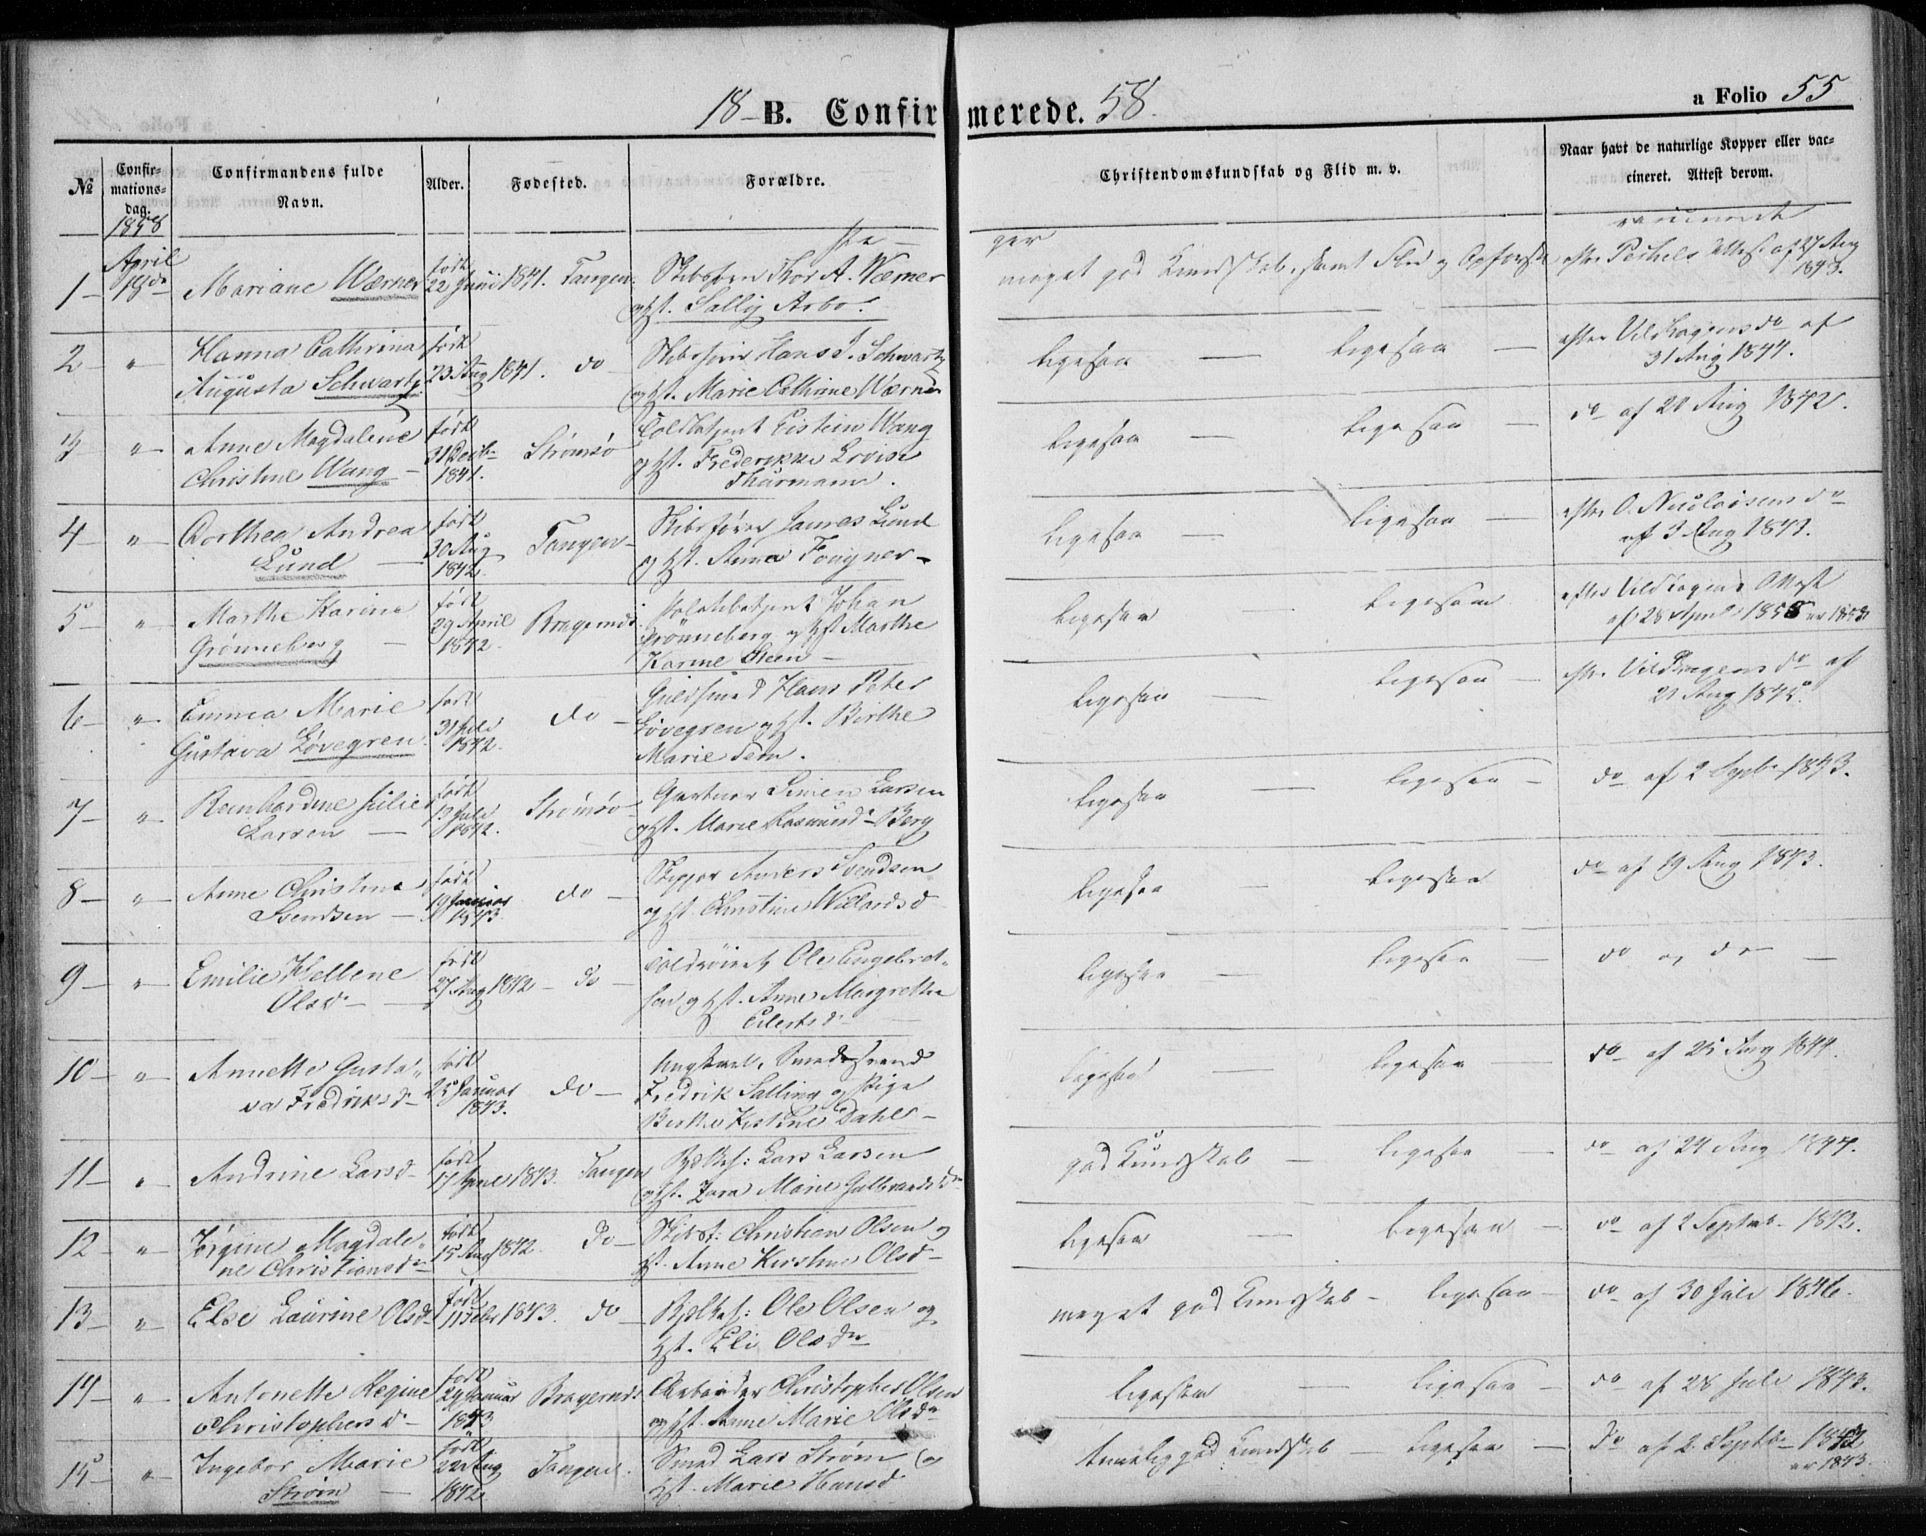 18 B. Confirmerede. 58.
a Folio 55
№
Confirmations-
dag.
Confirmandens fulde
Navn.
Alder.
Fødested.
Forældre.
Christendomskundskab og Flid m. v.
Naar havt de naturlige Kopper eller vac-
cineret. Attest derom.
1858
April
1 18de Mariane Wærner født 22 Juni 1841. Tangen Thor A. Wærner
og Hst. Sally Arbo.
meget god Kundskab, samt Flid og Opførsel
efter Attest af 27 Aug
1843.
2 " Hanna Cathrina
Augusta Schwartz født 23 Aug 1841. do Hans J. Schwartz
og Hst. Marie Cathrine Wærner
ligesaa — ligesaa —
efter Vildhagens do af
31 Aug 1844.
3 " Anne Magdalene
Christine Wang født 1841. Strømsø Eistein Wang
og Hst. Frederikke Lovise
Thurmann.
ligesaa — ligesaa
do af 20 Aug 1842.
4 " Dorthea Andrea
Lund født 30 Aug 1842. Tangen Skibsfører Lund
og Hst. Anna
ligesaa — ligesaa —
efter O. Nicolaisens do
af 3 Aug 1843.
5 " Marthe Karine
Grønneberg født 29 April 1842. Bragernæs Johan
Grønneberg og Hst Marthe
Karine Steen
ligesaa — ligesaa
efter Vildhagens Attest
af 28 April 1858
6 " Emma Marie
Gustava Løvegren født 31 Juli 1842. do Guldsmed Hans Peter
Løvegren og Hst. Birthe
Marie
ligesaa — ligesaa —
efter Vildhagens do af
21 Aug 1845.
7 " Reinhardine Julie
Larsen født 13 Juli 1842. Strømsø Gartner Simen Larsen
og Hst. Marie Berg
ligesaa — ligesaa —
do af 2 Septbr 1843.
8 " Anne Christine
Svendsen født 19 Januar 1843 do Skipper Anders Svendsen
og Hst. Christine
ligesaa — ligesaa
do af 19 Aug 1843.
9 " Emilie Hellene
Olsd født 27 Aug 1842 do Ole Engebret-
sen og Hst. Anne Margrethe
Eilertsd
ligesaa — ligesaa —
do og do —
10 " Annette Gusta-
va Fredriksd født 25 Januar 1843. do Ungkarl, Smedesvend
Fredrik Salling og Pige
Birthe Kistine Dahl
ligesaa — ligesaa —
do af 25 Aug 1844.
11 " Andrine Larsd født 17 1843. Tangen Lars Larsen
og Hst. Marie
god Kundskab — ligesaa —
do af 24 Aug 1844.
12 " Jørgine Magdale-
ne Christiansdr født 15 Aug 1842. do Christian Olsen og
Hst. Anne Kirstine Olsd
ligesaa — ligesaa —
do af 2 Septmb. 1843.
13 " Else Laurine Olsd født 11 Febr 1843. do Ole Olsen og
Hst. Eli Olsdr
meget god Kundskab — ligesaa —
do af 30 Juli 1846.
14 " Antonette Regine
Christophersd født 29 Januar 1843 Bragernæs Arbeider Christopher Olsen
og Hst. Anne Marie Olsdr
ligesaa — ligesaa —
do af 28 Juli 1843.
15 " Ingebor Marie
Strøm født 22 Aug 1842 Tangen. Smed Lars Strøm og
Hst. Marie Hansd
temmelig god Kundskab — ligesaa —
do af 2 Septbr